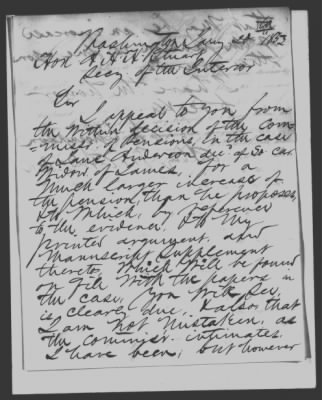 Washington Jany 20th 1852
Hon A. H. H. Stuart
Secy of the Interior
Sir
I appeal to you from
the within decision of the Com-
-missr of Pensions, in the case
of Jane Anderson decd of So Car.
Widow of James, for a
much larger increase of
the pension, than he proposes,
& to which, by reference
to the evidence, & to my
printed argument, and
Manuscript Supplement
thereto, which will be found
on file with the papers in
the case, you will see,
is clearly due, & also that
I am not mistaken, as
the commissr intimates
I have been, but however